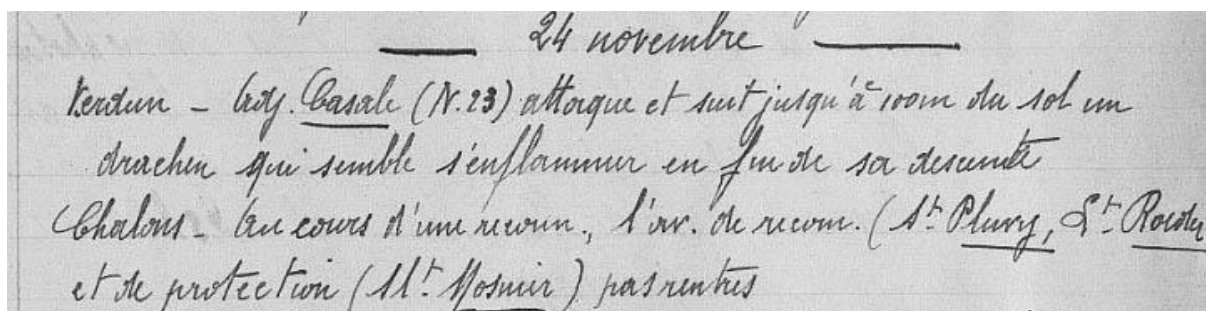 24 novembre
Verdun - Adj. Casale (N.23) attaque et suit jusqu'à 100m du sol un
drachen qui semble s'enflammer en fin de sa descente
Chalons - Au cours d'une reconn., l'av. de reconn. (St Pluvy, Lt
et de protection (Slt Mosnier) pas rentrés